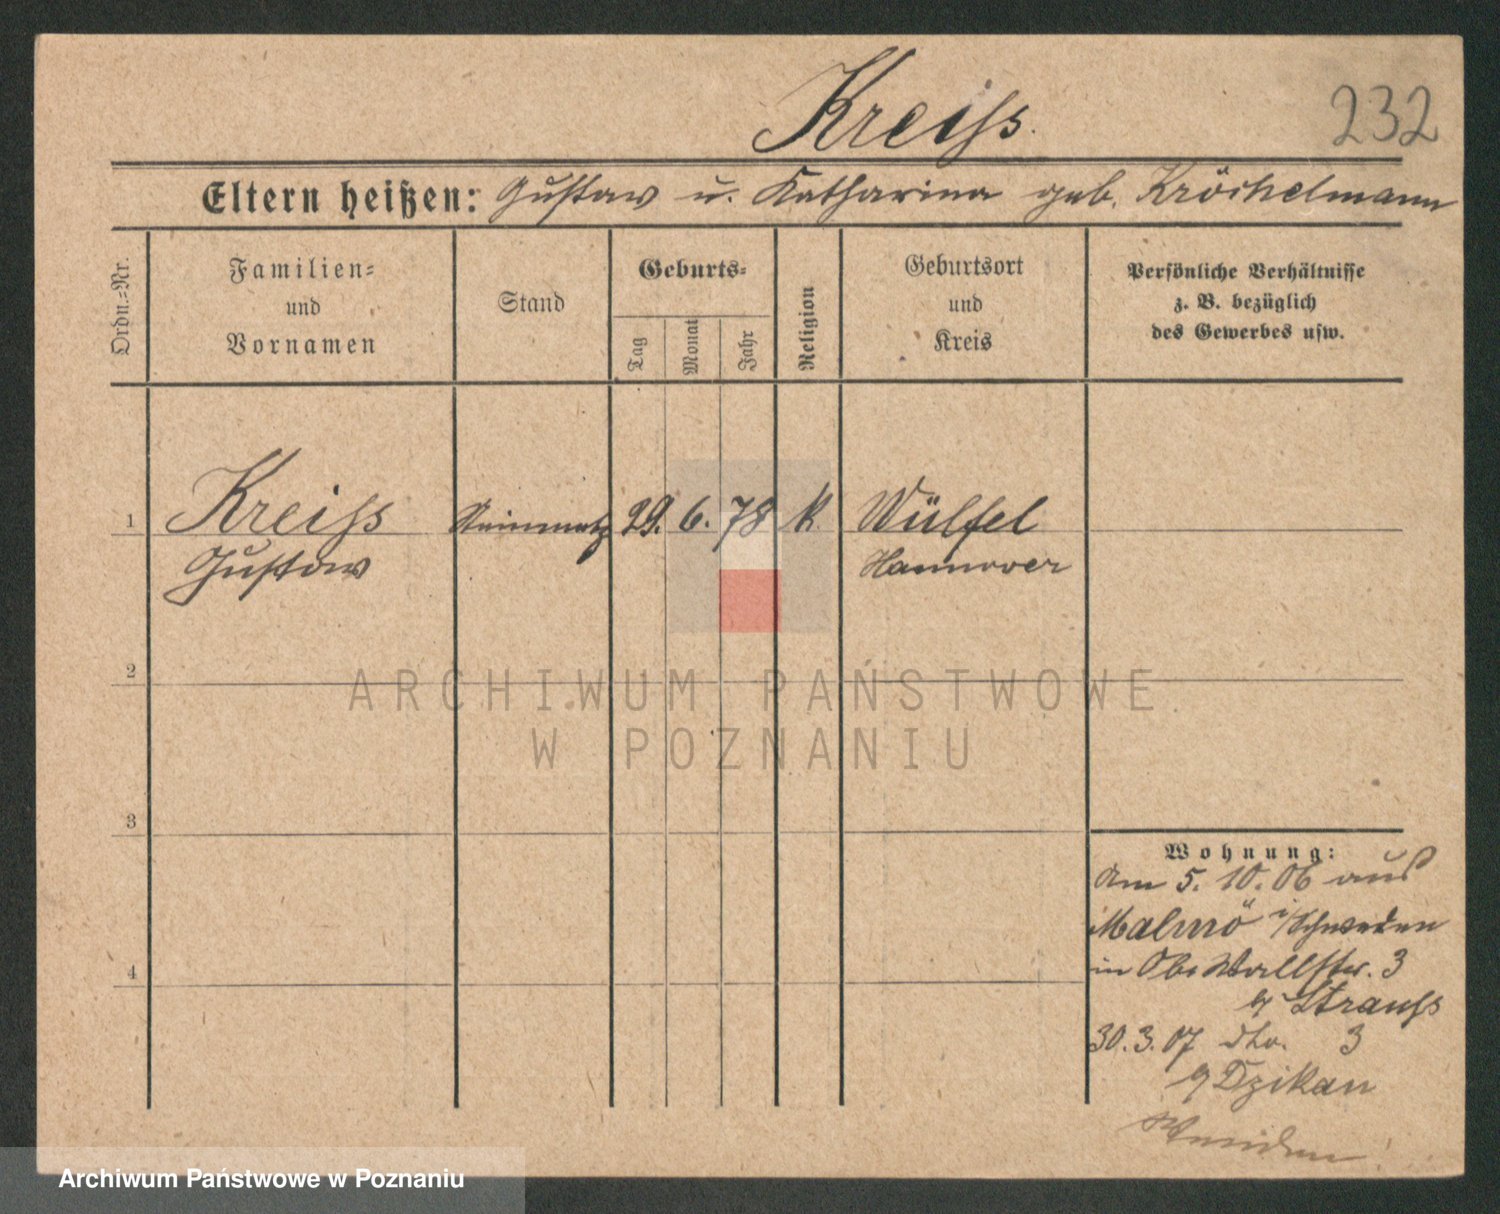 Kreiss.
232
Eltern heißen: Gustav u. Katharina geb. Kröchelmann
Ordn.-Nr.
Familien-
und
Vornamen
Stand
Geburts-
Tag
Monat
Jahr
Religion
Geburtsort
und
Kreis
Persönliche Verhältnisse
z. B. bezüglich
des Gewerbes usw.
1 Kreiss Steinmetz 29. 6. 78 k. Wülfel
Gustav Hannover
2
3
4
Wohnung:
Am 5. 10. 06 aus
Malmö i/Schweden
in Ob. Wallstr. 3
b/ Strauss
30. 3. 07 dto. 3
b/ Dzikan
Wenden!
ARCHIWUM PAŃSTWOWE
W POZNANIU
Archiwum Państwowe w Poznaniu